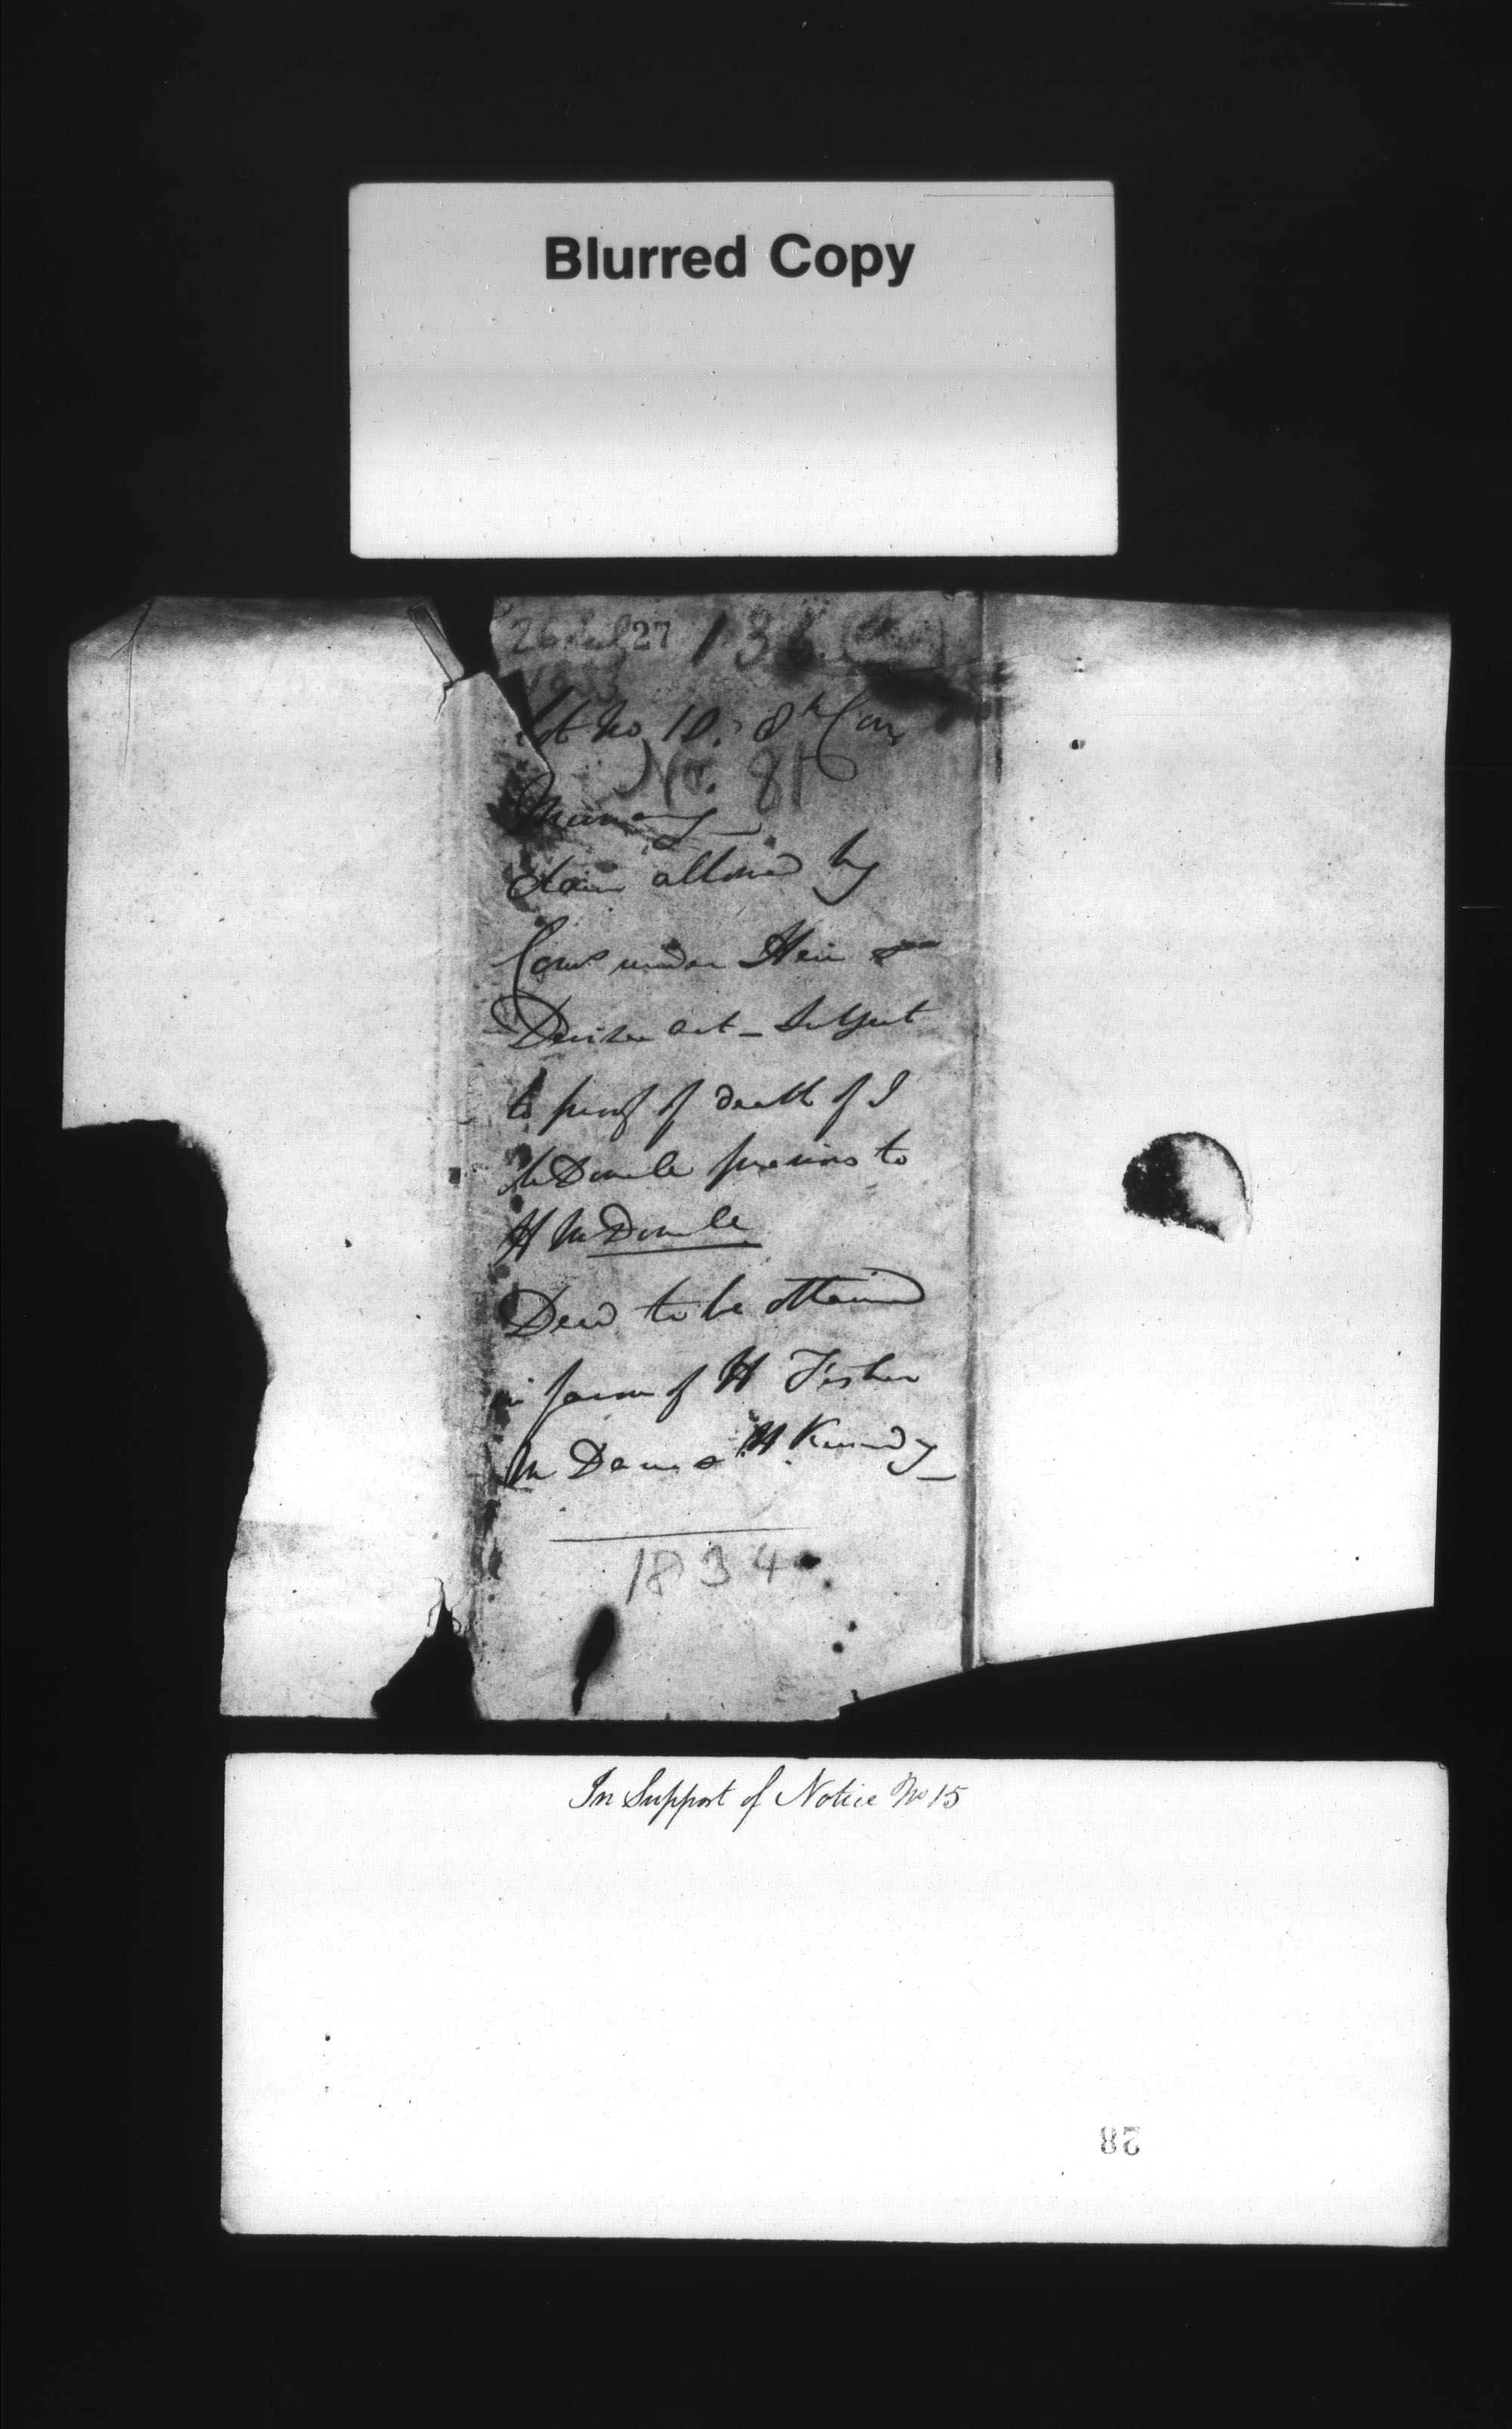 Blurred Copy
27 13
Lot No. 10. 8th Con
No. 81
Murray
Claim allowed by
Coms under Heir &
Devisee Act - Subject
to proof of death of J
McDonele previous to
H McDonele
Deed to be obtained
in favour of H Fisher
H. Kennedy
1834
In Support of Notice No 15
28